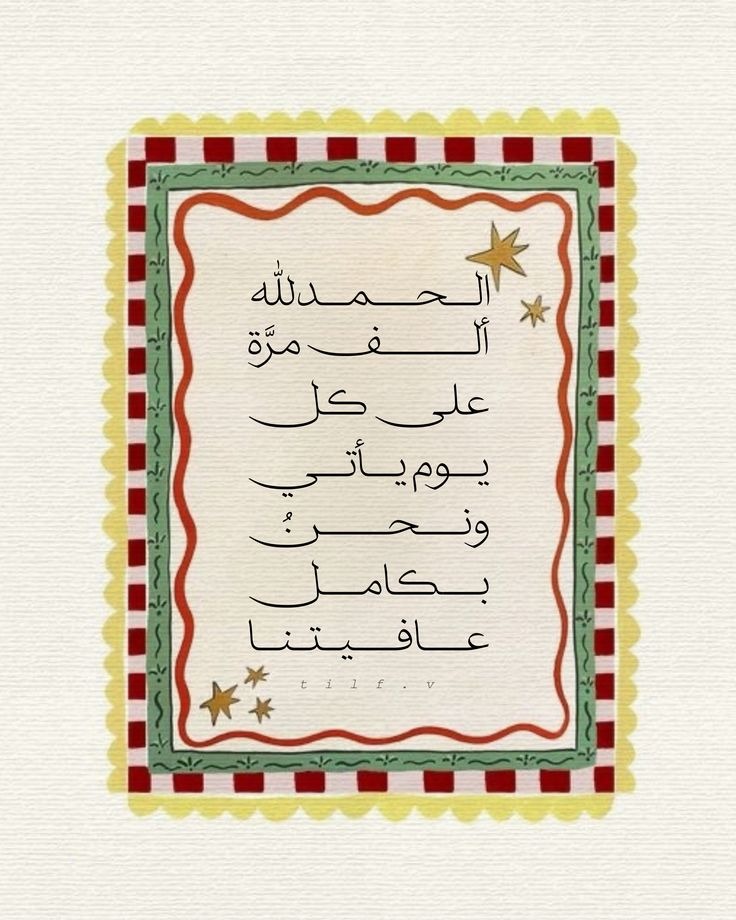 الحمدلله
ألف مرَّة
على كل
يوم يأتي
ونحنُ
بكامل
عافيتنا
tilf.v